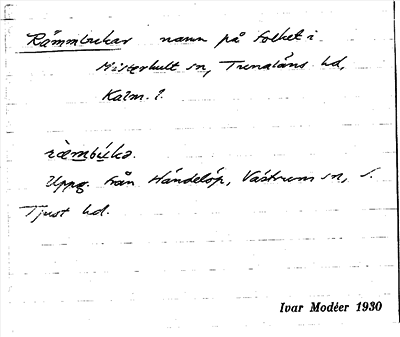 Rämmbukar namn på folket i
Misterhult sn, Tunaläns hd,
Kalm. l.
ræ̀mbúka.
Uppg. från Händelöp, Västrum sn, S.
Tjust hd.
Ivar Modéer 1930